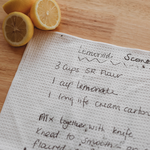 Lemonade Scones
3 Cups SR Flour
1 cup Lemonade
1 long life cream carton
Mix together with knife
Knead to smoothness on
Floured